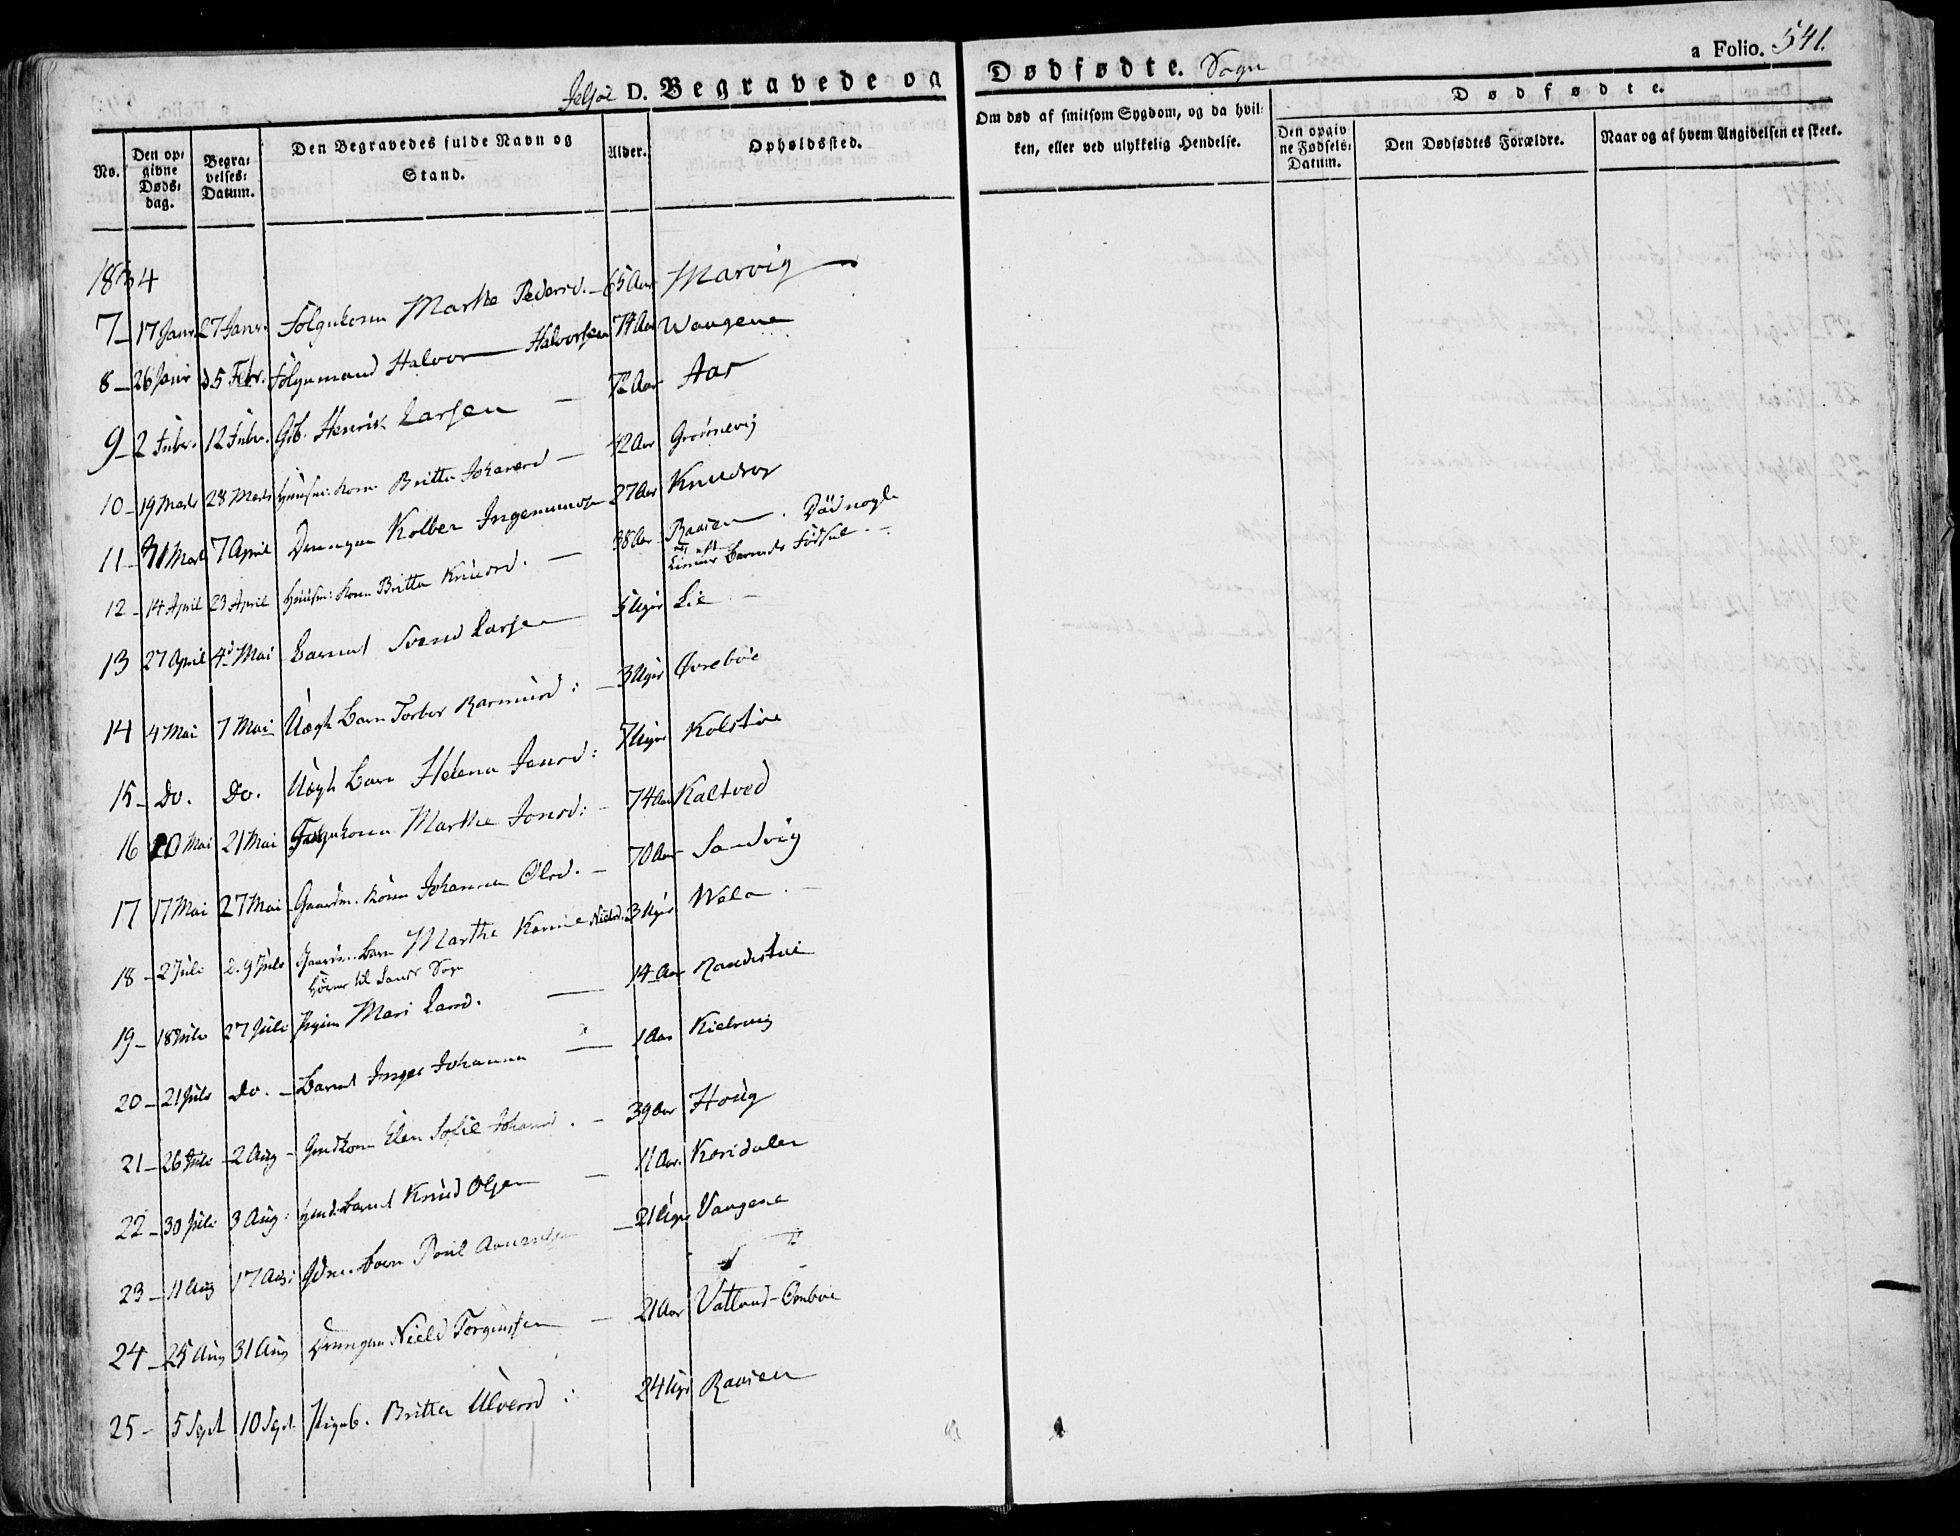 Jelsøe D. Begravede og Dødfødte. Sogn a Folio. 541.
No. Den opgivne Dødsdag. Begravelses-Datum. Den Begravedes fulde Navn og Stand. Alder. Opholdssted. Om død af smitsom Sygdom, og da hvilken, eller ved ulykkelig Hendelse. Dødfødte. Den opgivne Fødsels-Datum. Den Dødfødtes Forældre. Naar og af hvem Angivelsen er skeet.
1834
7 - 17 Janr 27 Janr. Folgekone Marthe Pedersd. - 65 Aar Marvig
8 - 26 Janr d 5 Febr. Folgemand Halvor Halvorsen 74 Aar Wangene
9 - 2 Febr. 12 Febr. Gb. Henrik Larsen - 72 Aar Aar
10 - 19 Marts 28 Marts Huusm: Kone Britta Johansd - 42 Aar Grønevig
11 - 31 Mart 7 April Drengen Kolben Ingemunds 27 Aar
12 - 14 April 23 April Huusm: Kone Britta Knudsd. - 38 Aar Raaien. Død nogle
Timer eft. Barnets Fødsel. -
13 27 April 4d Mai Barnet Svend Larsen 5 Uger Lie -
14 4 Mai 7 Mai Uægte Barn Torber Rasmusd: - 3 Uger Øvrebøe
15 - Do. Do. Uægte Barn Helena Jensd: 7 Uger Kolstøe
16 20 Mai 21 Mai Folgekone Marthe Jonsd: - 74 Aar Kaltved
17 17 Mai 27 Mai Gaardm. Kone Johanna Olsd. - 70 Aar Sandvig
18 - 2 Juli d. 9 Juli Gaardm. Barn Marthe Karine Nielsd. 3 Uger Wela. -
hører til Sands Sogn
19 - 18 Juli 27 Juli Pigen Mari Larsd. - 14 Aar Randistue
20 - 21 Juli Do. - Barnet Inger Johanna - 1 Aar
21 - 26 Juli - 2 Aug - Gmdkone Elen Sofie Johansd. - 39 Aar Houg
22 - 30 Juli 3 Aug: Gmds Barnet Knud Olsen - 11 Aar. Kosidalen
23 - 11 Aug 17 Aug: Gdm. barn Poul - 21 Uger Vangene
24 - 25 Aug 31 Aug Drengen Niels Torgersen - 21 Aar Vatland-Ombøe
25 - 5 Sept 10 Sept. Pigeb. Britta Ulversd: 24 Uger Raaien